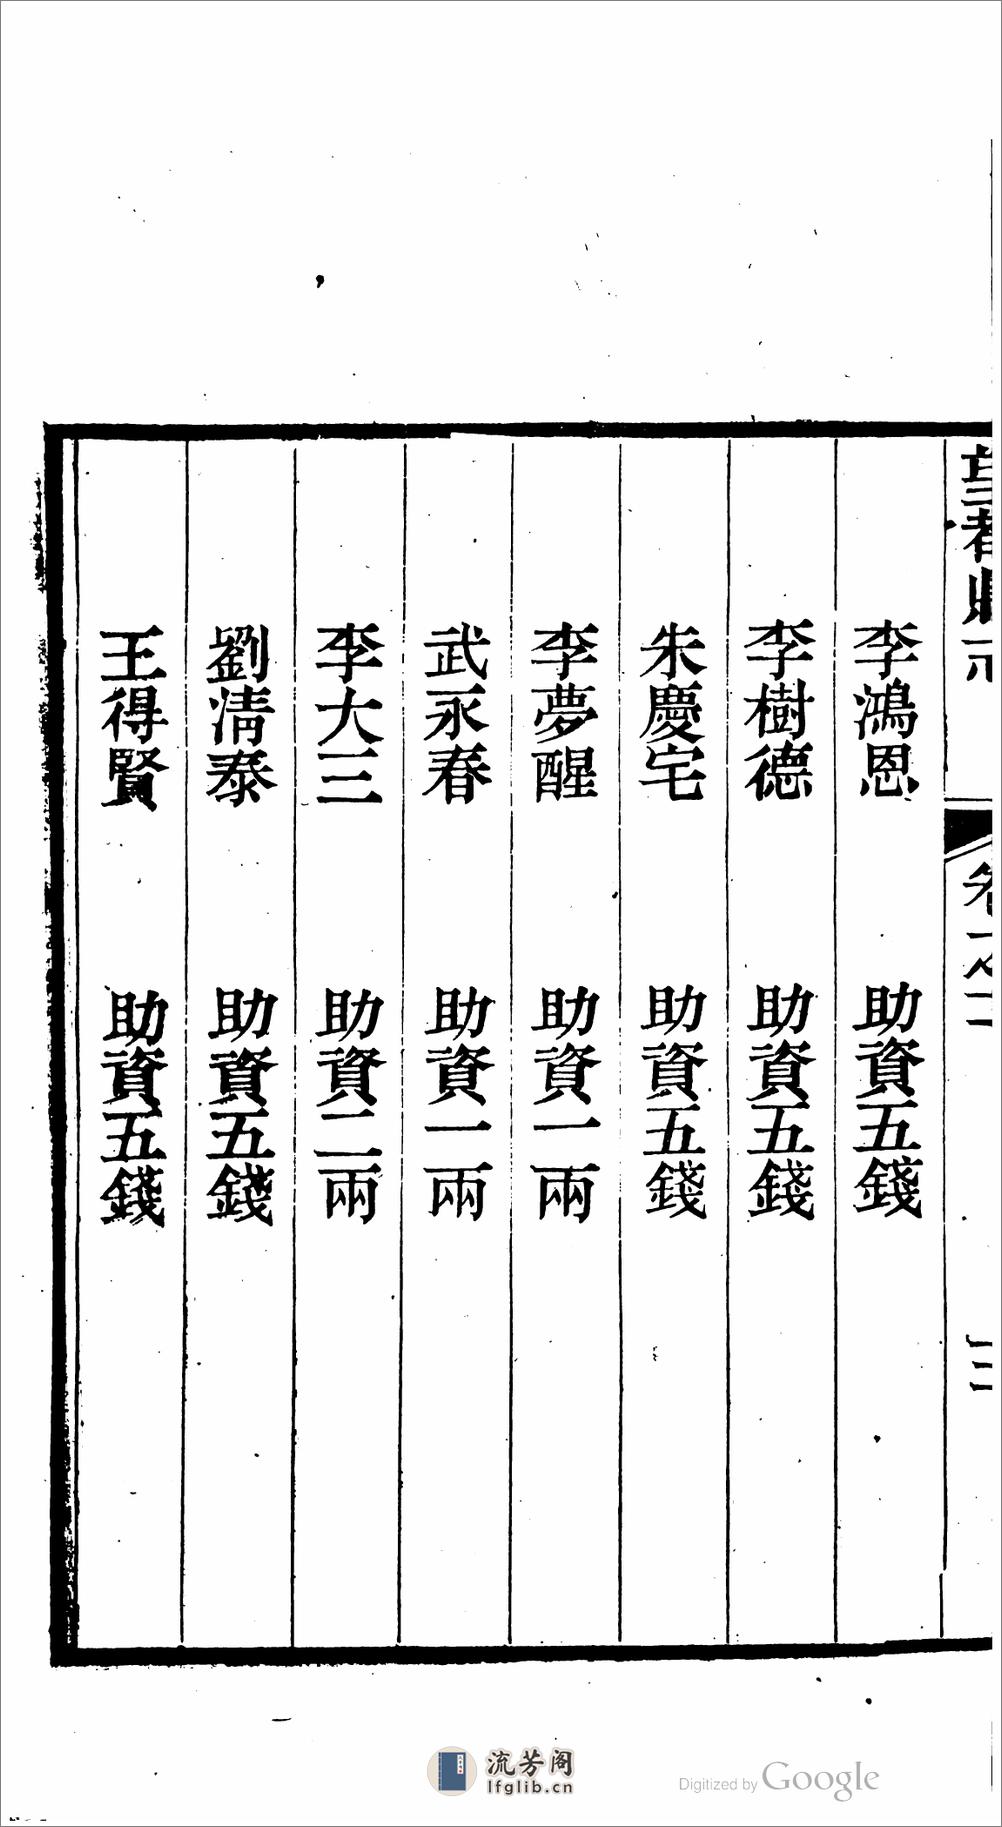 李鴻恩　助資五錢
李樹德　助資五錢
朱慶宅　助資五錢
李夢醒　助資一兩
武永春　助資一兩
李大三　助資二兩
劉清泰　助資五錢
王得賢　助資五錢
流芳阁
lfglib.cn
Digitized by Google